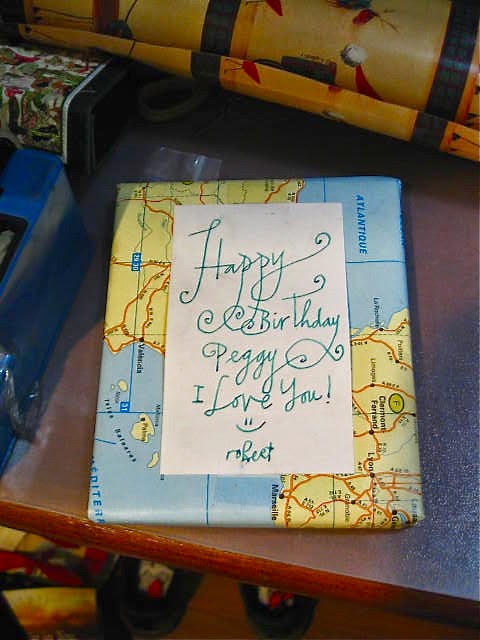 Happy
BirThday
Peggy
I Love You!
robert
ATLANTIQUE
Valencia
Palma
Islas Baleares
Limoges
Clermont
Ferrand
Lyon
Marseille
Grenoble